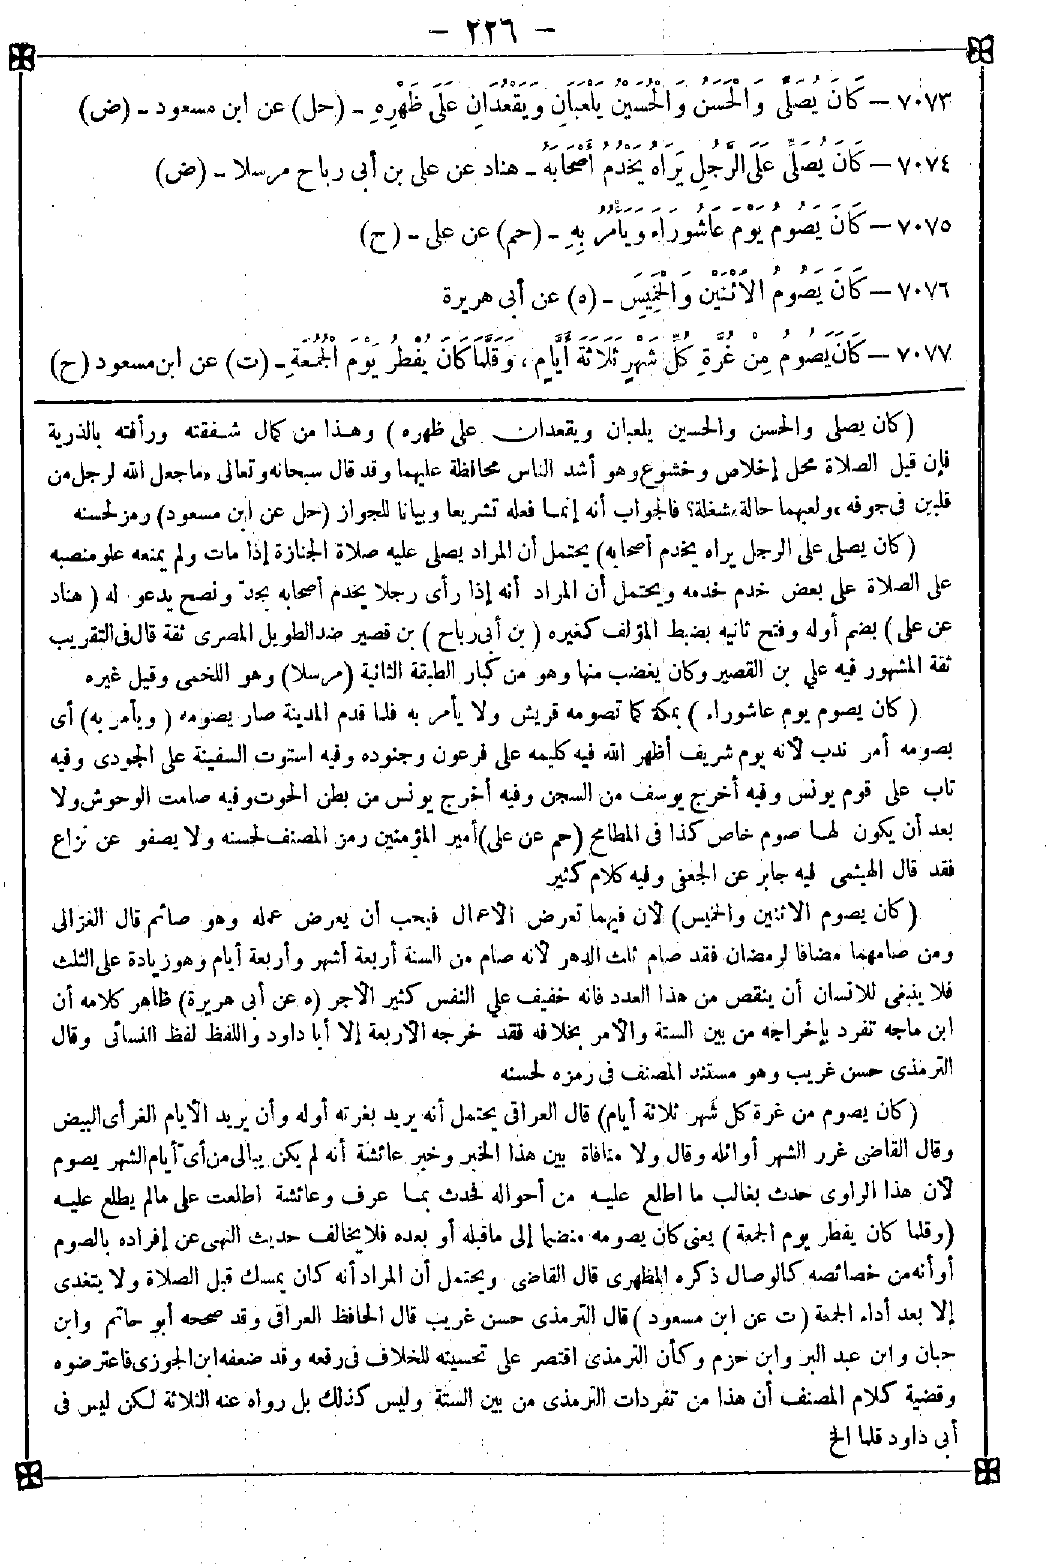 - ٢٢٦ -
٧٠٧٣ - كَانَ يُصَلِّى وَالْحَسَنُ وَالْحُسَيْنُ يَلْعَبَانِ وَيَقْعُدَانِ عَلَى ظَهْرِهِ - (حل) عن ابن مسعود - (ض)
٧٠٧٤ - كَانَ يُصَلِّى عَلَى الرَّجُلِ يَرَاهُ يَخْدُمُ أَصْحَابَهُ - هناد عن على بن أبى رباح مرسلا - (ض)
٧٠٧٥ - كَانَ يَصُومُ يَوْمَ عَاشُورَاءَ وَيَأْمُرُ بِهِ - (حم) عن على - (ح)
٧٠٧٦ - كَانَ يَصُومُ الاَثْنَيْنِ وَالْخَمِيسَ - (ه) عن أبى هريرة
٧٠٧٧ - كَانَ يَصُومُ مِنْ غُرَّةِ كُلِّ شَهْرٍ ثَلَاثَةَ أَيَّامٍ ، وَقَلَّمَا كَانَ يُفْطِرُ يَوْمَ الْجُمُعَةِ - (ت) عن ابن مسعود (ح)
(كان يصلى والحسن والحسين يلعبان ويقعدان على ظهره ) وهذا من كمال شفقته ورأفته بالذرية
فإن قيل الصلاة محل إخلاص وخشوع وهو أشد الناس محافظة عليهما وقد قال سبحانه وتعالى «ماجعل الله لرجل من
قلبين فى جوفه» ولعبهما حالة مشغلة؟ فالجواب أنه إنما فعله تشريعا وبيانا للجواز (حل عن ابن مسعود) رمز لحسنه
(كان يصلى على الرجل يراه يخدم أصحابه) يحتمل أن المراد يصلى عليه صلاة الجنازة إذا مات ولم يمنعه علو منصبه
على الصلاة على بعض خدم خدمه ويحتمل أن المراد أنه إذا رأى رجلا يخدم أصحابه بجد ونصح يدعو له ( هناد
عن على ) بضم أوله وفتح ثانيه بضبط المؤلف كغيره ( بن أبى رباح ) بن قصير ضد الطويل المصرى ثقة قال فى التقريب
ثقة المشهور فيه علي بن القصير وكان يغضب منها وهو من كبار الطبقة الثانية (مرسلا) وهو اللخمى وقيل غيره
( كان يصوم يوم عاشوراء ) بمكة كما تصومه قريش ولا يأمر به فلما قدم المدينة صار يصومه ( ويأمر به) أى
بصومه أمر ندب لأنه يوم شريف أظهر الله فيه كليمه على فرعون وجنوده وفيه استوت السفينة على الجودى وفيه
تاب على قوم يونس وفيه أخرج يوسف من السجن وفيه أخرج يونس من بطن الحوت وفيه صامت الوحوش ولا
بعد أن يكون لها صوم خاص كذا فى المطامح (حم عن على) أمير المؤمنين رمز المصنف لحسنه ولا يصفو عن نزاع
فقد قال الهيثمى فيه جابر عن الجعفى وفيه كلام كثير
(كان يصوم الاثنين والخميس) لأن فيهما تعرض الأعمال فيحب أن يعرض عمله وهو صائم قال الغزالى
ومن صامهما مضافا لرمضان فقد صام ثلث الدهر لأنه صام من السنة أربعة أشهر وأربعة أيام وهو زيادة على الثلث
فلا ينبغى للانسان أن ينقص من هذا العدد فانه خفيف علي النفس كثير الأجر (ه عن أبى هريرة) ظاهر كلامه أن
ابن ماجه تفرد بإخراجه من بين الستة والأمر بخلافه فقد خرجه الأربعة إلا أبا داود واللفظ لفظ النسائى وقال
الترمذى حسن غريب وهو مستند المصنف فى رمزه لحسنه
(كان يصوم من غرة كل شهر ثلاثة أيام) قال العراقى يحتمل أنه يريد بغرته أوله وأن يريد الأيام الغر أى البيض
وقال القاضى غرر الشهر أوائله وقال ولا منافاة بين هذا الخبر وخبر عائشة أنه لم يكن يبالى من أى أيام الشهر يصوم
لأن هذا الراوى حدث بغالب ما اطلع عليه من أحواله فحدث بما عرف وعائشة اطلعت على مالم يطلع عليه
(وقلما كان يفطر يوم الجمعة ) يعنى كان يصومه منضما إلى ماقبله أو بعده فلا يخالف حديث النهى عن إفراده بالصوم
أو أنه من خصائصه كالوصال ذكره المظهرى قال القاضى ويحتمل أن المراد أنه كان يمسك قبل الصلاة ولا يتغدى
إلا بعد أداء الجمعة ( ت عن ابن مسعود ) قال الترمذى حسن غريب قال الحافظ العراقى وقد صححه أبو حاتم وابن
حبان وابن عبد البر وابن حزم وكأن الترمذى اقتصر على تحسينه للخلاف فى رفعه وقد ضعفه ابن الجوزى فاعترضوه
وقضية كلام المصنف أن هذا من تفردات الترمذى من بين الستة وليس كذلك بل رواه عنه الثلاثة لكن ليس فى
أبى داود قلما الخ